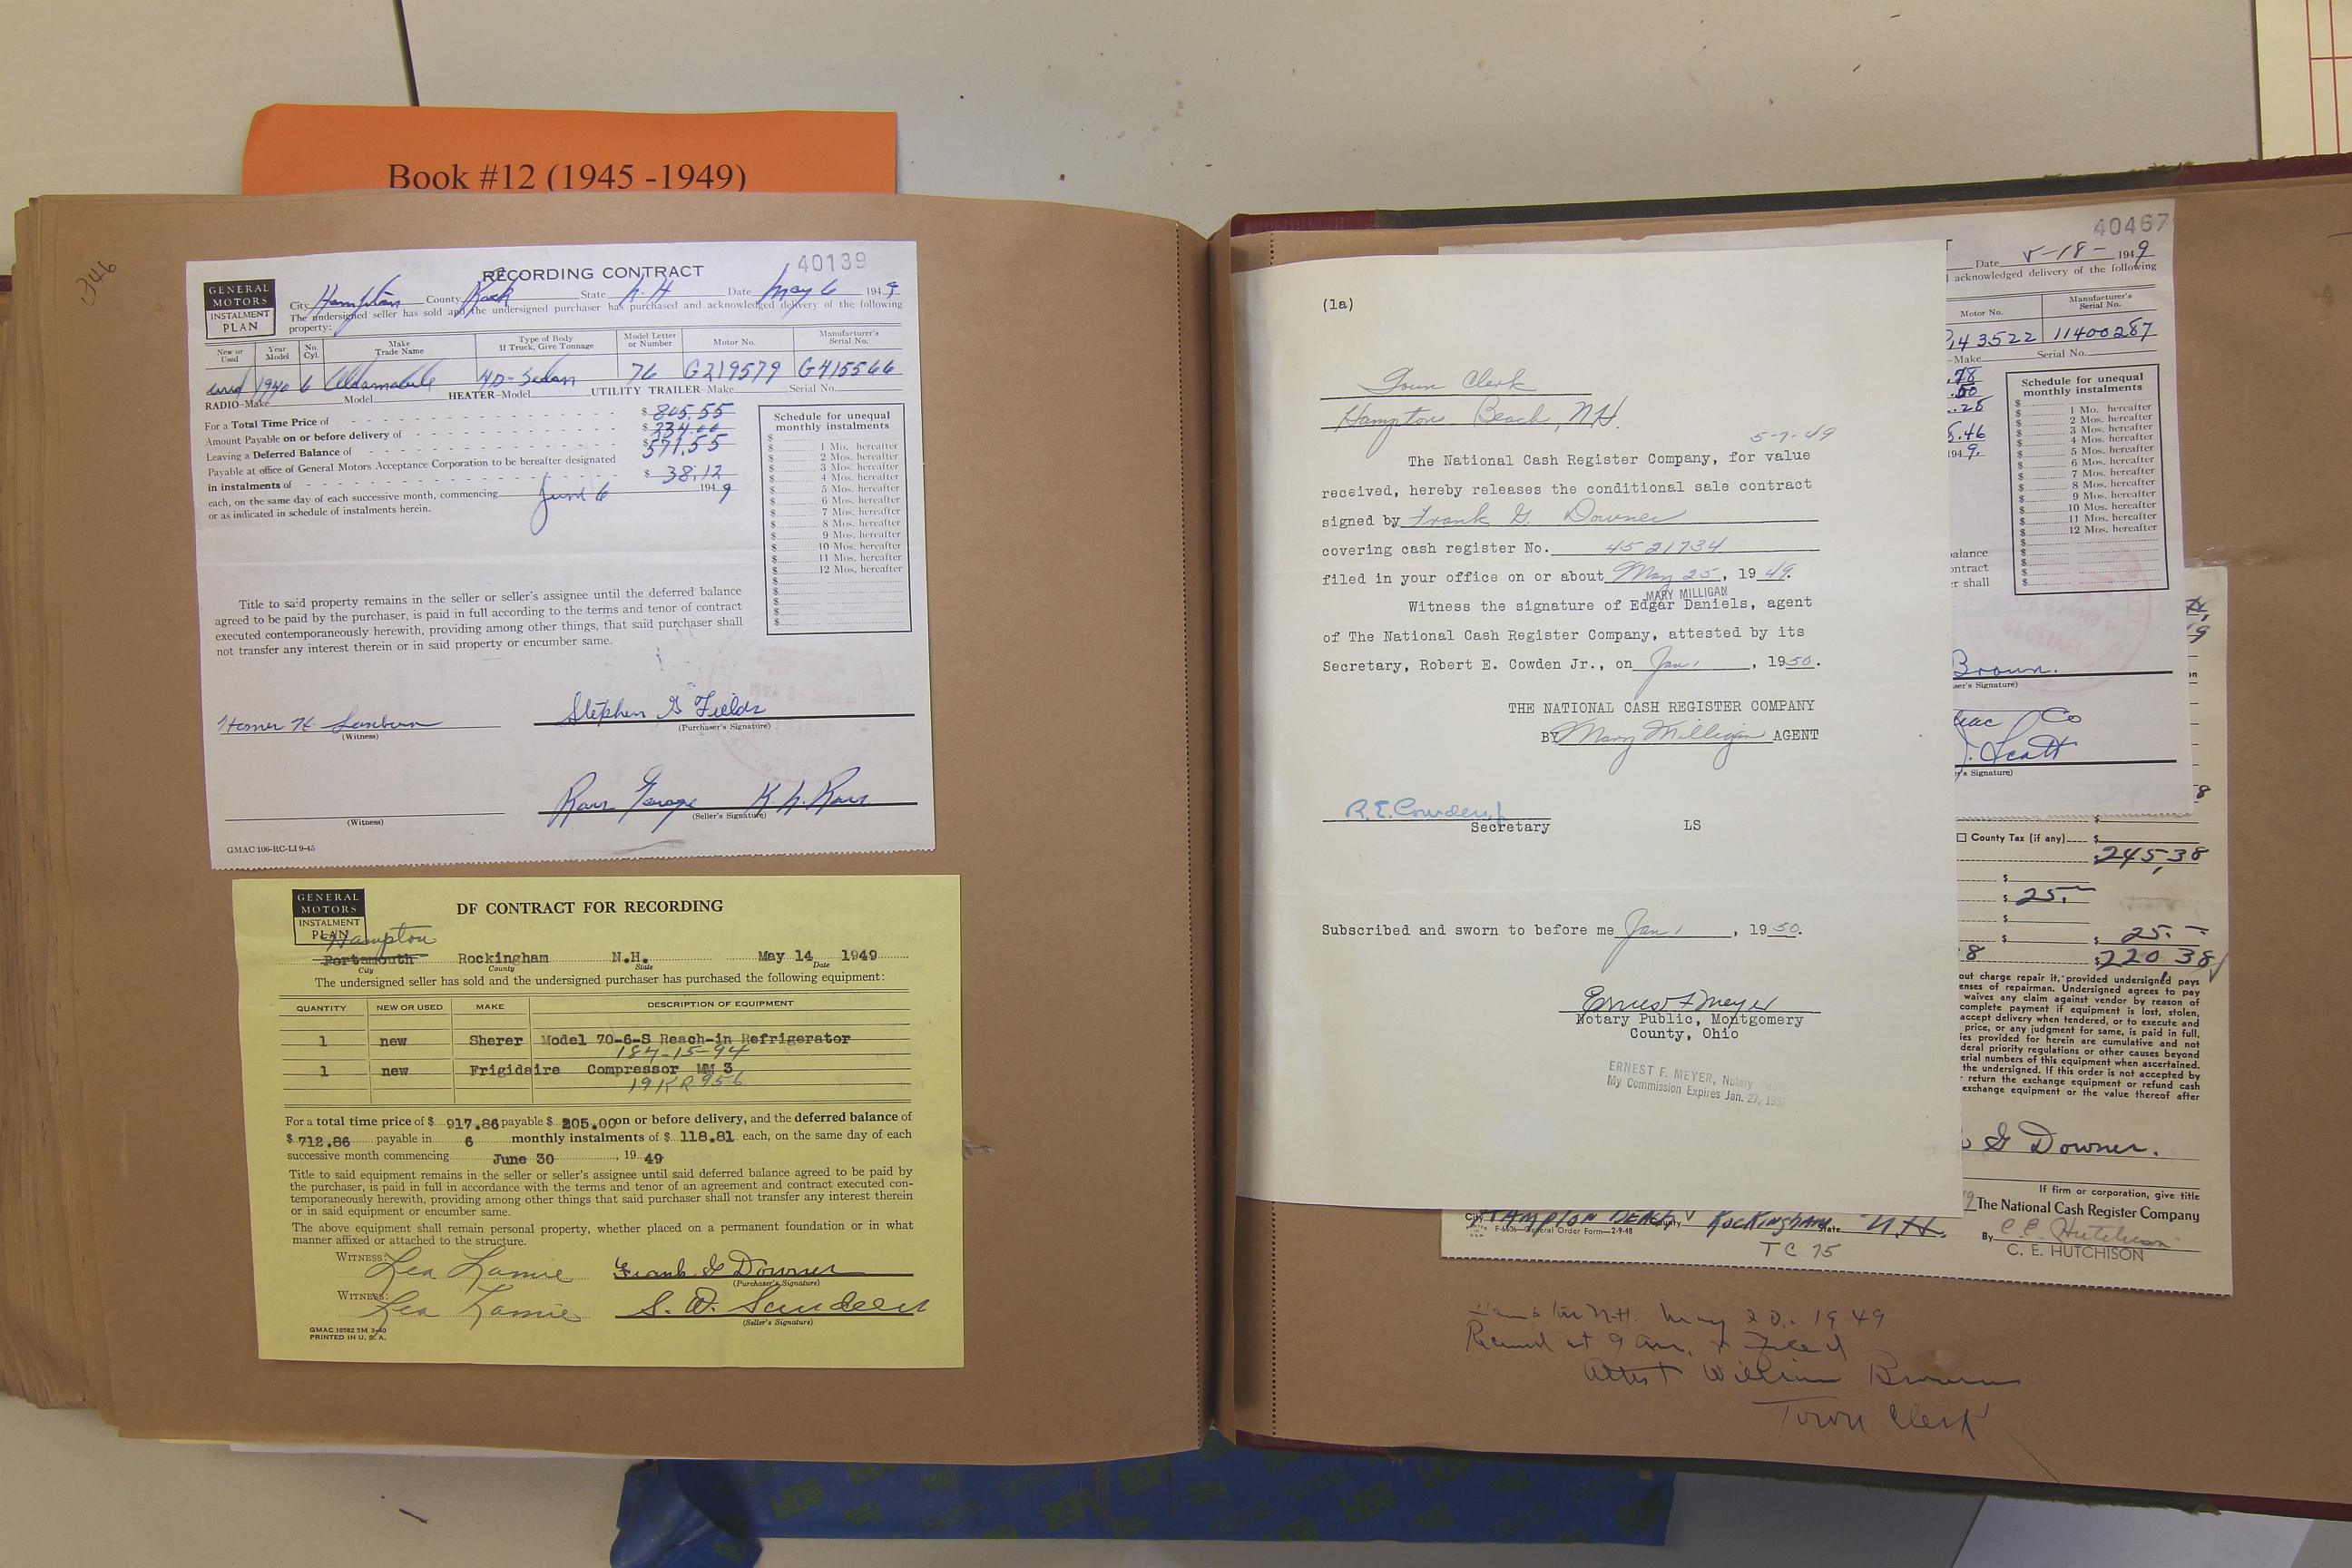 Book #12 (1945 -1949)
346
40139
RECORDING CONTRACT
GENERAL
MOTORS
INSTALMENT
PLAN
City Hampton County Rock State N. H Date May 6 1949
The undersigned seller has sold and the undersigned purchaser has purchased and acknowledged delivery of the following
property:
New or Used Year Model No. Cyl. Make Trade Name Type of Body If Truck, Give Tonnage Model Letter or Number Motor No. Manufacturer's Serial No.
used 1940 6 Oldsmobile 4D-Sedan 76 G219579 G415566
RADIO-Make Model HEATER-Model UTILITY TRAILER-Make Serial No.
For a Total Time Price of $ 805.55
Amount Payable on or before delivery of $ 234.00
Leaving a Deferred Balance of $ 571.55
Payable at office of General Motors Acceptance Corporation to be hereafter designated
in instalments of $ 38.12
each, on the same day of each successive month, commencing June 6 1949
or as indicated in schedule of instalments herein.
Schedule for unequal
monthly instalments
$
$ 1 Mo. hereafter
$ 2 Mos. hereafter
$ 3 Mos. hereafter
$ 4 Mos. hereafter
$ 5 Mos. hereafter
$ 6 Mos. hereafter
$ 7 Mos. hereafter
$ 8 Mos. hereafter
$ 9 Mos. hereafter
$ 10 Mos. hereafter
$ 11 Mos. hereafter
$ 12 Mos. hereafter
$
$
$
$
$
Title to said property remains in the seller or seller's assignee until the deferred balance
agreed to be paid by the purchaser, is paid in full according to the terms and tenor of contract
executed contemporaneously herewith, providing among other things, that said purchaser shall
not transfer any interest therein or in said property or encumber same.
Homer H.
(Witness)
Stephen G Fields
(Purchaser's Signature)
(Witness)
Garage
(Seller's Signature)
GMAC 106-RC-LI 9-45
GENERAL
MOTORS
INSTALMENT
PLAN
DF CONTRACT FOR RECORDING
Hampton
Portsmouth Rockingham N.H. May 14 1949
City County State Date
The undersigned seller has sold and the undersigned purchaser has purchased the following equipment:
QUANTITY NEW OR USED MAKE DESCRIPTION OF EQUIPMENT
1 new Sherer Model 70-6-S Reach-in Refrigerator
187-15-94
1 new Frigidaire Compressor MM 3
19KR956
For a total time price of $ 917.86 payable $ 205.00 on or before delivery, and the deferred balance of
$ 712.86 payable in 6 monthly instalments of $ 118.81 each, on the same day of each
successive month commencing June 30, 19 49
Title to said equipment remains in the seller or seller's assignee until said deferred balance agreed to be paid by
the purchaser, is paid in full in accordance with the terms and tenor of an agreement and contract executed con-
temporaneously herewith, providing among other things that said purchaser shall not transfer any interest therein
or in said equipment or encumber same.
The above equipment shall remain personal property, whether placed on a permanent foundation or in what
manner affixed or attached to the structure.
WITNESS: Lea Lamie Frank G Downer
(Purchaser's Signature)
WITNESS: Lea Lamie S. W.
(Seller's Signature)
GMAC 10582 5M 3-40
PRINTED IN U. S. A.
(1a)
Town Clerk
Hampton Beach, NH.
5-7-49
The National Cash Register Company, for value
received, hereby releases the conditional sale contract
signed by Frank G. Downer
covering cash register No. 4521734
filed in your office on or about May 25, 1949.
MARY MILLIGAN
Witness the signature of Edgar Daniels, agent
of The National Cash Register Company, attested by its
Secretary, Robert E. Cowden Jr., on Jan 1, 1950.
THE NATIONAL CASH REGISTER COMPANY
BY Mary Milligan AGENT
R.E. Cowden Jr
Secretary LS
Subscribed and sworn to before me Jan 1, 1950.
Ernest F Meyer
Notary Public, Montgomery
County, Ohio
ERNEST F. MEYER, Notary Public
My Commission Expires Jan. 27, 1952
40467
Date 5-18- 1949
acknowledged delivery of the following
Motor No. Manufacturer's Serial No.
43522 11400287
-Make Serial No.
.78
.50
.28
.46
1949.
Schedule for unequal
monthly instalments
$
$ 1 Mo. hereafter
$ 2 Mos. hereafter
$ 3 Mos. hereafter
$ 4 Mos. hereafter
$ 5 Mos. hereafter
$ 6 Mos. hereafter
$ 7 Mos. hereafter
$ 8 Mos. hereafter
$ 9 Mos. hereafter
$ 10 Mos. hereafter
$ 11 Mos. hereafter
$ 12 Mos. hereafter
$
$
$
$
$
balance
ontract
er shall
Brown.
ser's Signature)
iac Co
J. Scott
r's Signature)
County Tax (if any) $
245.38
$
$ 25.
$
$ $ 25.
8 $ 220 38
out charge repair it, provided undersigned pays
enses of repairman. Undersigned agrees to pay
waives any claim against vendor by reason of
complete payment if equipment is lost, stolen,
accept delivery when tendered, or to execute and
price, or any judgment for same, is paid in full,
ies provided for herein are cumulative and not
deral priority regulations or other causes beyond
erial numbers of this equipment when ascertained.
the undersigned. If this order is not accepted by
return the exchange equipment or refund cash
exchange equipment or the value thereof after
G Downer.
If firm or corporation, give title
The National Cash Register Company
By C. E. Hutchison
C. E. HUTCHISON
City HAMPTON BEACH County ROCKINGHAM State N.H.
F-6606—General Order Form—2-9-48
TC 75
Hampton N.H. May 20, 1949
Received at 9 am, & Filed
Attest William Brown
Town Clerk